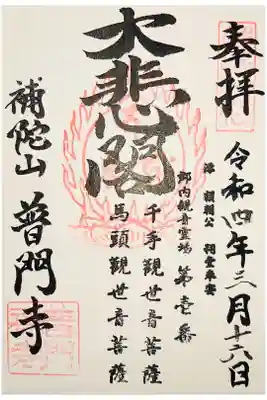 奉拝
令和四年三月十六日
郡内観音霊場 第壱番
大悲閣
千手観世音菩薩
馬頭観世音菩薩
補陀山 普門寺